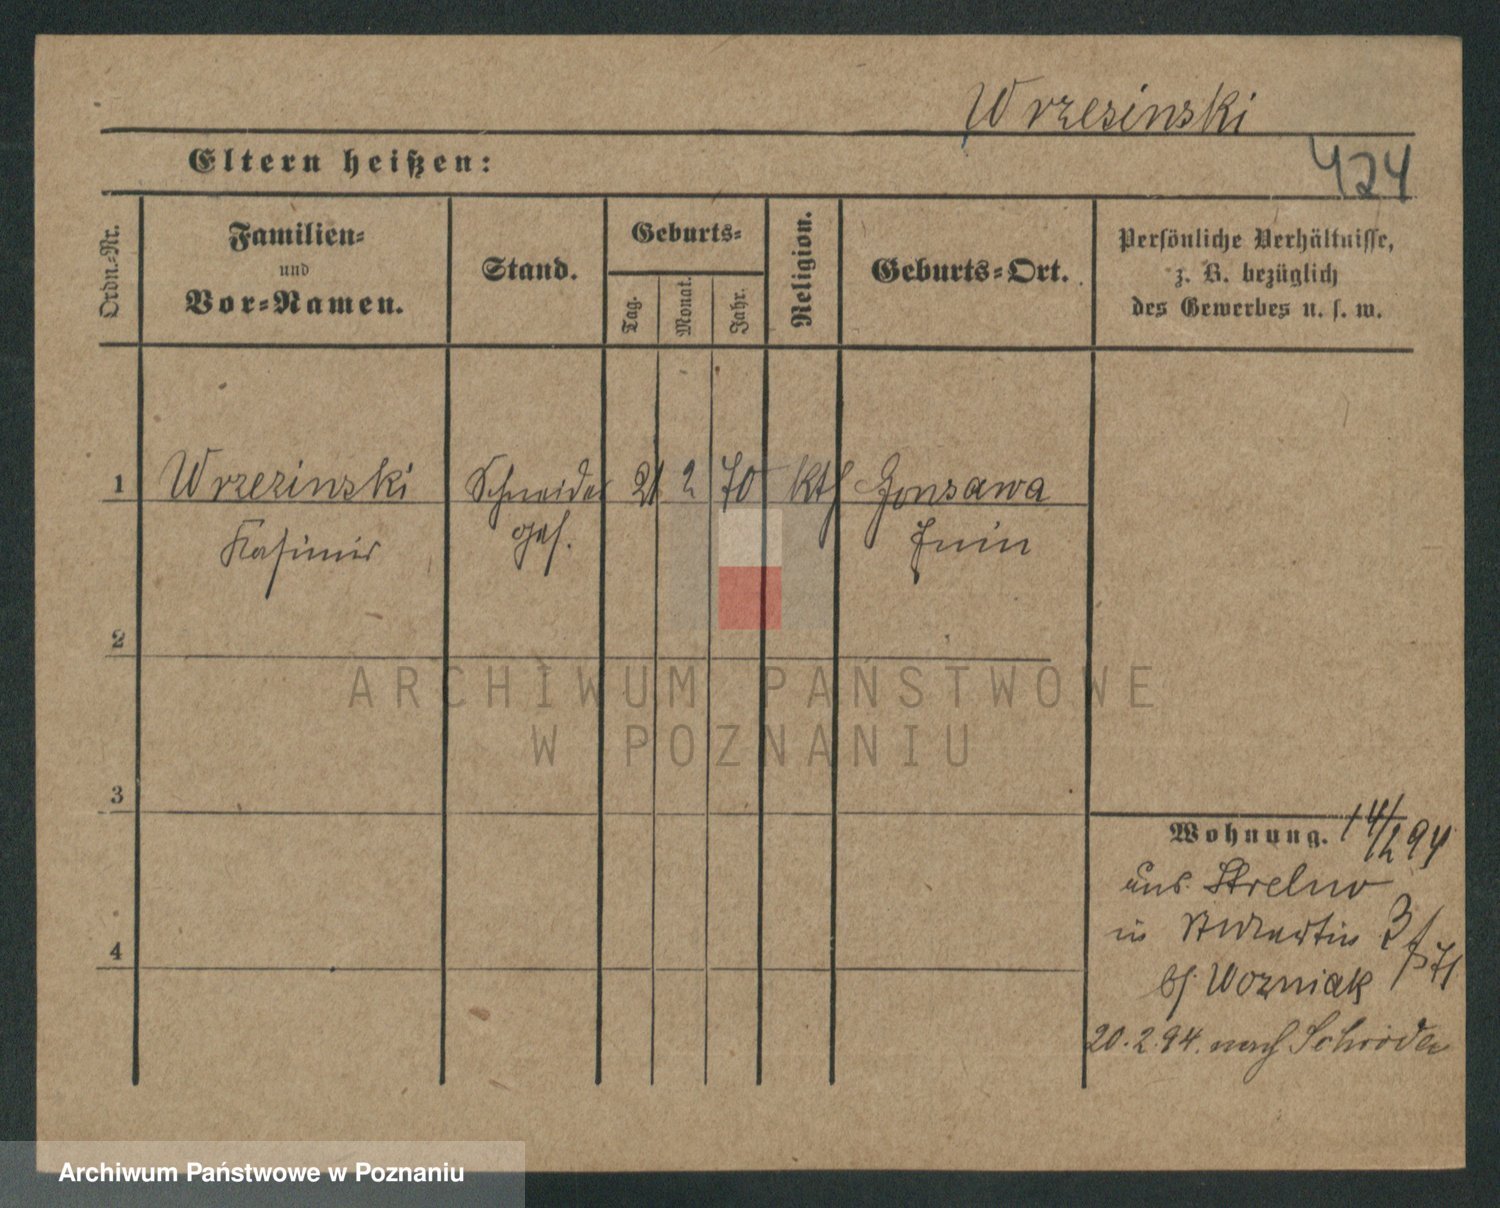 Wrzesinski
Eltern heißen:
424
Ordn.-Nr.
Familien-
und
Vor-Namen.
Stand.
Geburts-
Tag.
Monat.
Jahr.
Religion.
Geburts-Ort.
Persönliche Verhältnisse,
z. B. bezüglich
des Gewerbes u. s. w.
1 Wrzesinski Schneider 21 2 70 kth Gonsawa
Kasimir ges. Znin
2
ARCHIWUM PAŃSTWOWE
W POZNANIU
3
Wohnung. 14/2 94
aus Strelno
in St Martin 3
4
bei Wozniak
20.2.94. nach Schroda
Archiwum Państwowe w Poznaniu